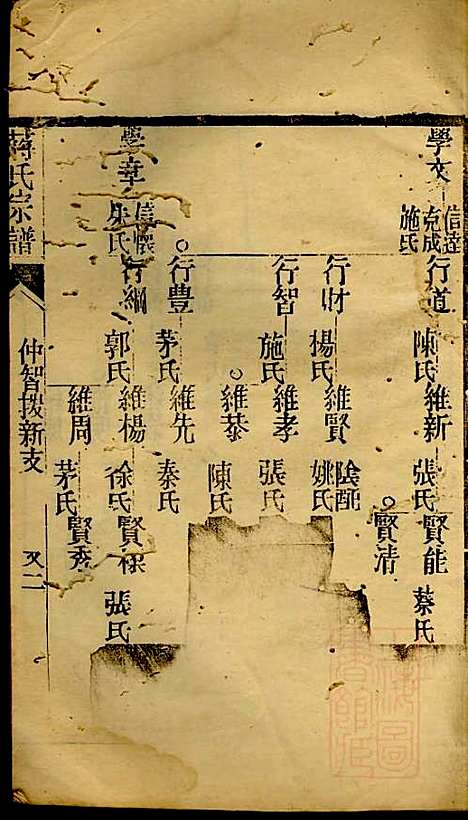 學文 信達 克成 施氏
行道 陳氏 維新 張氏 賢能 蔡氏
賢清
行財 楊氏 維賢 姚氏 陰配
行智 施氏 維孝 張氏
維恭 陳氏
行豊 茅氏 維先 秦氏
學章 信懷 朱氏
行綱 郭氏 維楊 徐氏 賢 張氏
維周 茅氏 賢秀
蔣氏宗譜
仲智拨新支
又二